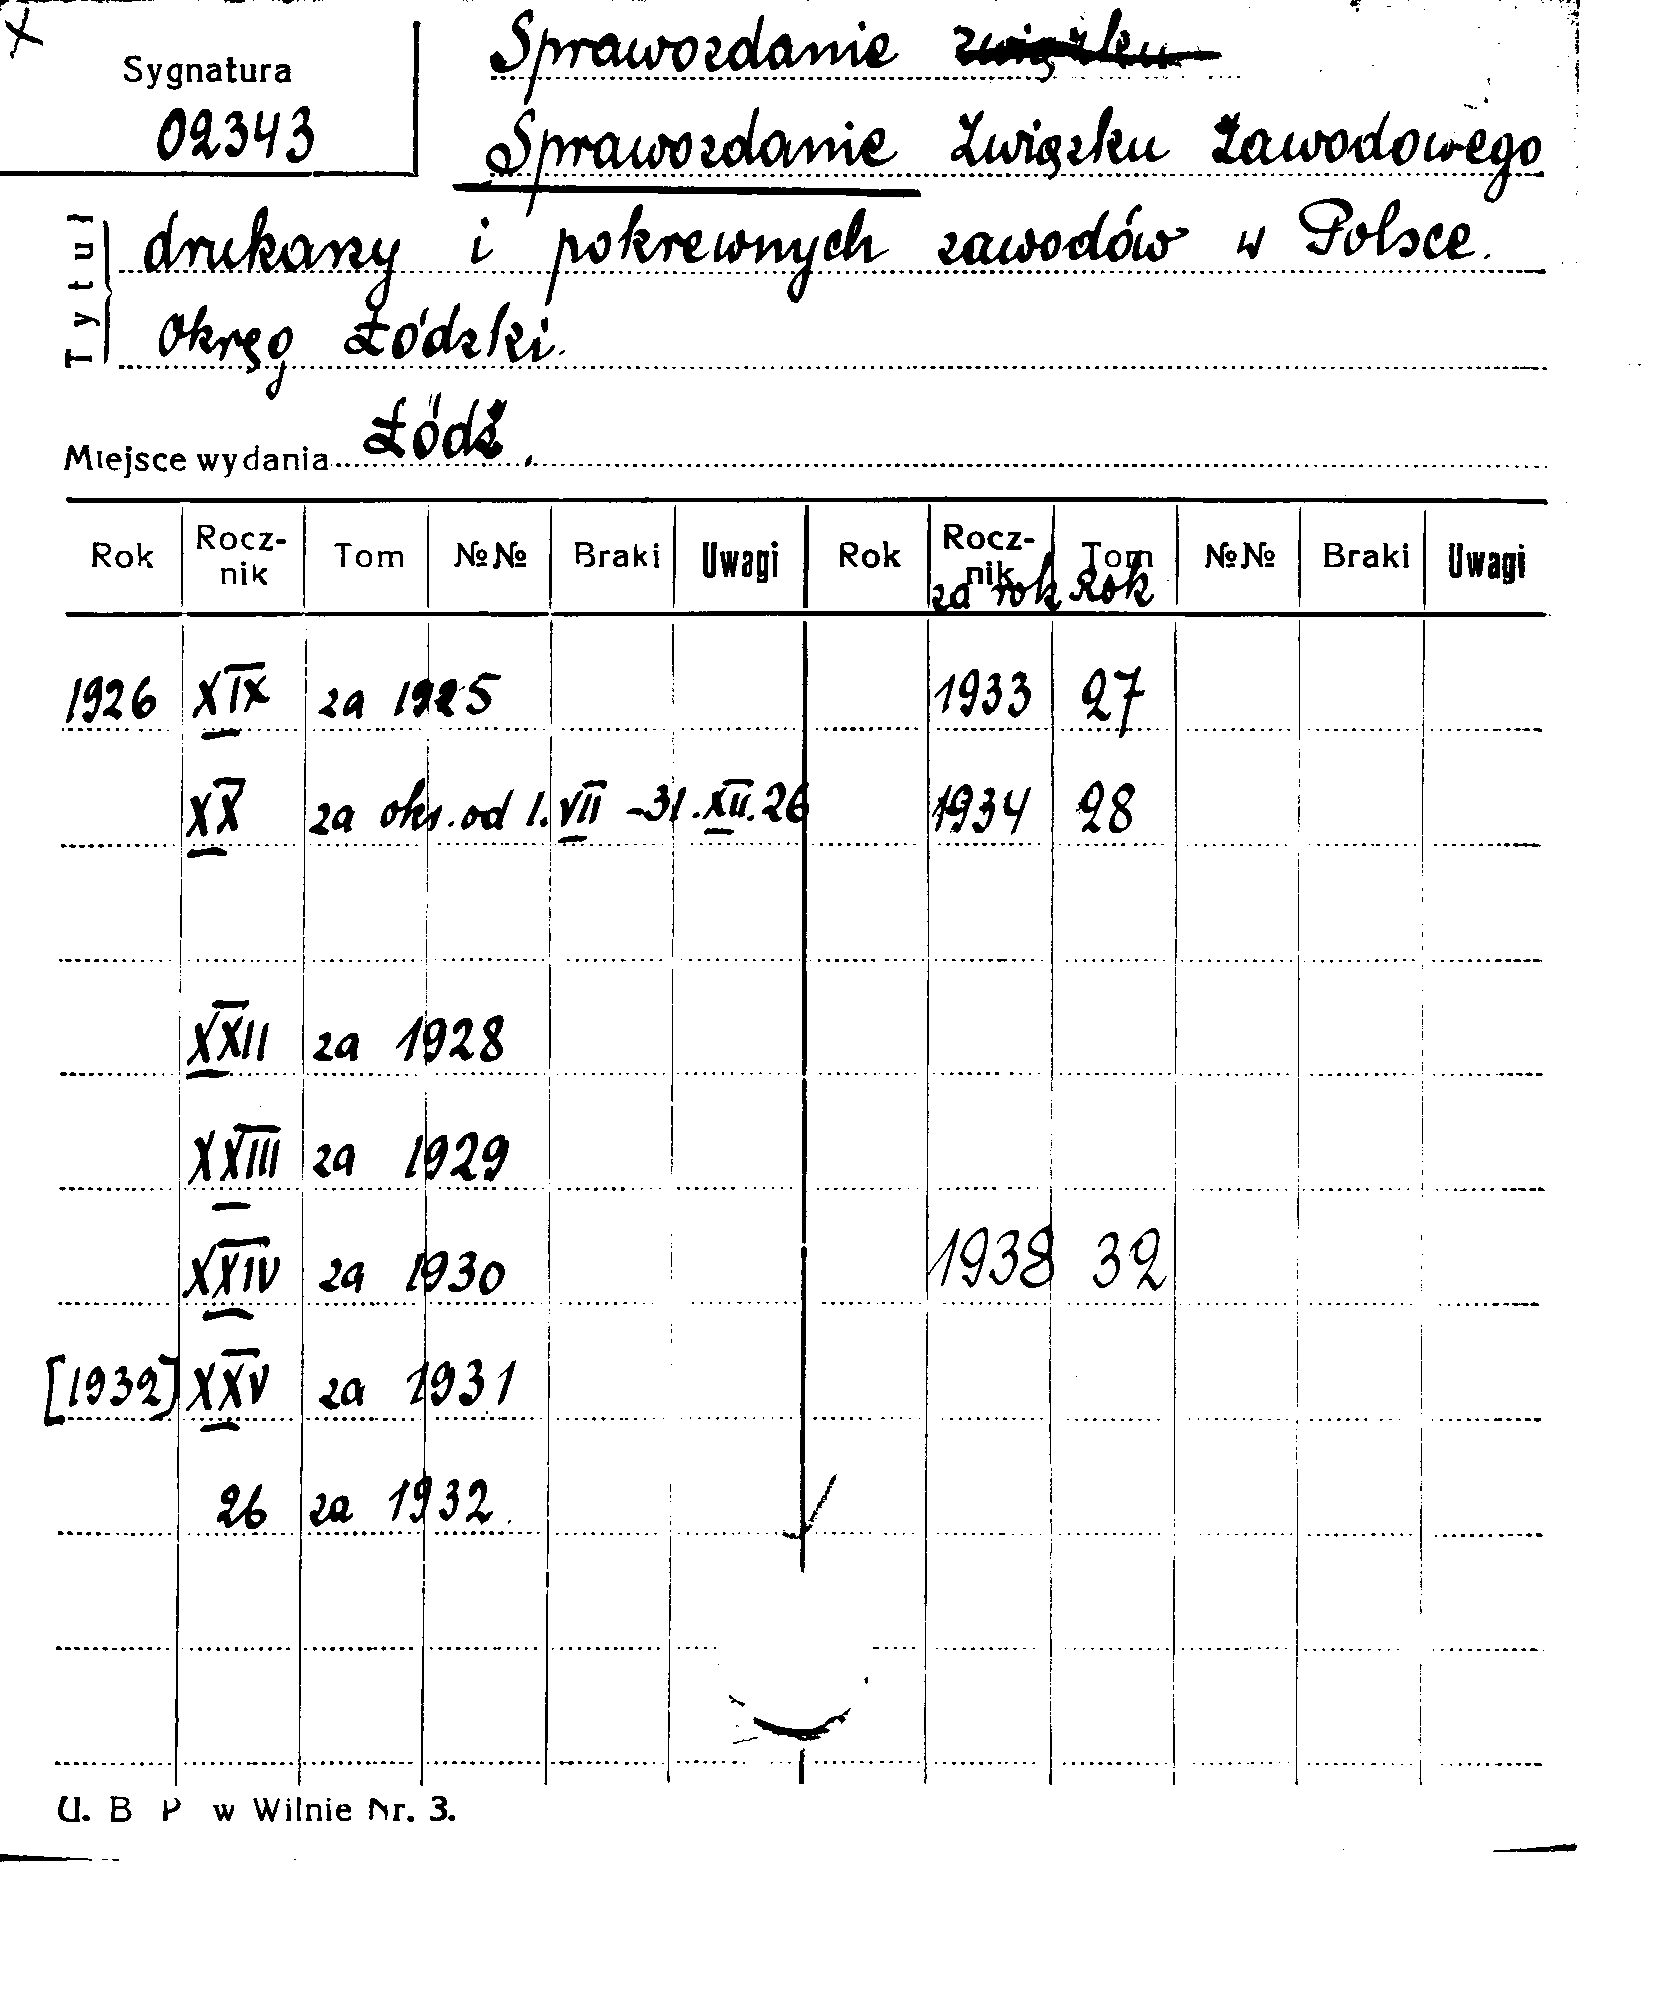 Sygnatura
02343
Sprawozdanie związku
Sprawozdanie Związku Zawodowego
Tytuł
drukarzy i pokrewnych zawodów w Polsce.
Okręg Łódzki.
Miejsce wydania Łódź.
Rok Rocz-nik Tom №№ Braki Uwagi Rok Rocz-nik Tom №№ Braki Uwagi
za rok Rok
1926 XIX za 1925 1933 27
XX za oks. od 1. VII - 31. XII. 26 1934 28
XXII za 1928
XXIII za 1929
XXIV za 1930 1938 32
[1932] XXV za 1931
26 za 1932.
U. B P w Wilnie Nr. 3.